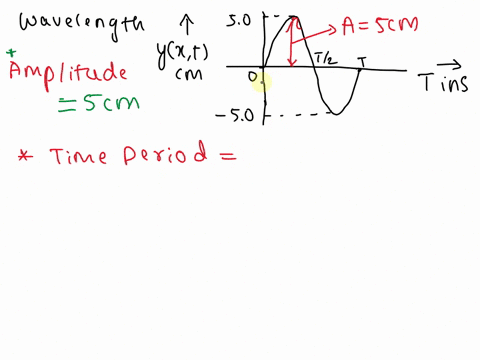 wavelength
↑
5.0
A = 5cm
y(x,t)
cm
* Amplitude
= 5cm
0
T/2
T
T in s
-5.0
* Time Period =